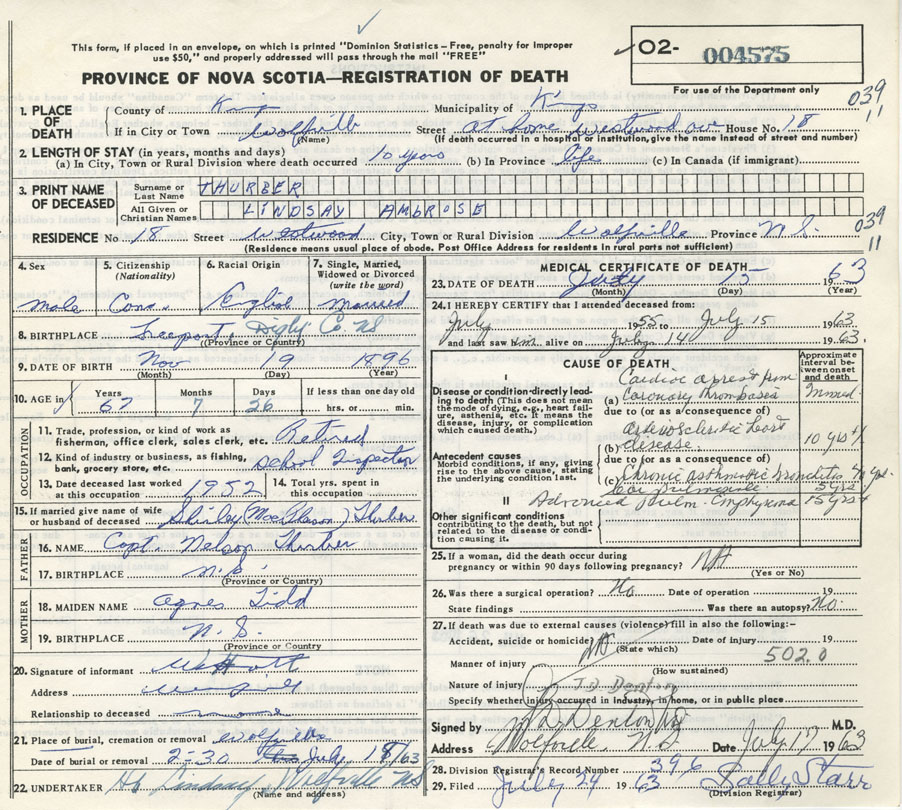 This form, if placed in an envelope, on which is printed "Dominion Statistics – Free, penalty for improper
use $50," and properly addressed will pass through the mail "FREE"
O2- 004575
PROVINCE OF NOVA SCOTIA—REGISTRATION OF DEATH
For use of the Department only
039
11
1. PLACE OF DEATH
County of Kings Municipality of Kings
If in City or Town Wolfville Street at home, Westwood ave House No. 18
(Name) (If death occurred in a hospital or institution, give the name instead of street and number)
2. LENGTH OF STAY (in years, months and days)
(a) In City, Town or Rural Division where death occurred 10 years (b) In Province life (c) In Canada (if immigrant)
3. PRINT NAME OF DECEASED
Surname or Last Name THURBER
All Given or Christian Names LINDSAY AMBROSE
RESIDENCE No. 18 Street Westwood City, Town or Rural Division Wolfville Province N.S.
039
11
(Residence means usual place of abode. Post Office Address for residents in rural parts not sufficient)
4. Sex
male
5. Citizenship (Nationality)
Can.
6. Racial Origin
English
7. Single, Married, Widowed or Divorced (write the word)
Married
8. BIRTHPLACE Freeport Digby Co NS
(Province or Country)
9. DATE OF BIRTH Nov 19 1896
(Month) (Day) (Year)
10. AGE in
Years Months Days If less than one day old
67 7 26 hrs. or min.
OCCUPATION
11. Trade, profession, or kind of work as fisherman, office clerk, sales clerk, etc. Retired
12. Kind of industry or business, as fishing, bank, grocery store, etc. School Inspector
13. Date deceased last worked at this occupation 1952
14. Total yrs. spent in this occupation
15. If married give name of wife or husband of deceased Shirley Thurber
FATHER
16. NAME Capt. Nelson Thurber
17. BIRTHPLACE N.S.
(Province or Country)
MOTHER
18. MAIDEN NAME Agnes Tidd
19. BIRTHPLACE N.S.
(Province or Country
20. Signature of informant
Address
Relationship to deceased
21. Place of burial, cremation or removal Wolfville
Date of burial or removal 2-30 July 18/63
22. UNDERTAKER Lindsay Wolfville NS
(Name and address)
MEDICAL CERTIFICATE OF DEATH
23. DATE OF DEATH July 15 1963
(Month) (Day) (Year)
24. I HEREBY CERTIFY that I attended deceased from:
July 1955 to July 15 1963
and last saw him alive on July 14 1963.
CAUSE OF DEATH
Approximate interval between onset and death
I
Disease or condition directly leading to death (This does not mean the mode of dying, e.g., heart failure, asthenia, etc. It means the disease, injury, or complication which caused death.)
(a) Cardiac arrest from Coronary thrombosis Immed.
due to (or as a consequence of)
Antecedent causes
Morbid conditions, if any, giving rise to the above cause, stating the underlying condition last.
(b) Arteriosclerotic heart disease 10 yrs +
due to (or as a consequence of)
(c) Chronic asthmatic bronchitis
II
Other significant conditions contributing to the death, but not related to the disease or condition causing it.
Advanced Pulm. Emphysema 15 yrs +
25. If a woman, did the death occur during pregnancy or within 90 days following pregnancy? NA
(Yes or No)
26. Was there a surgical operation? No Date of operation 19
State findings Was there an autopsy? No.
27. If death was due to external causes (violence) fill in also the following:–
Accident, suicide or homicide? NA Date of injury 19
(State which)
502.0
Manner of injury
(How sustained)
Nature of injury J D Denton
Specify whether injury occurred in industry, in home, or in public place
Signed by Denton M.D.
Address Wolfville, N.S. Date July 17 1963
28. Division Registrar's Record Number 396
29. Filed July 29 1963 Sally Starr
(Division Registrar)